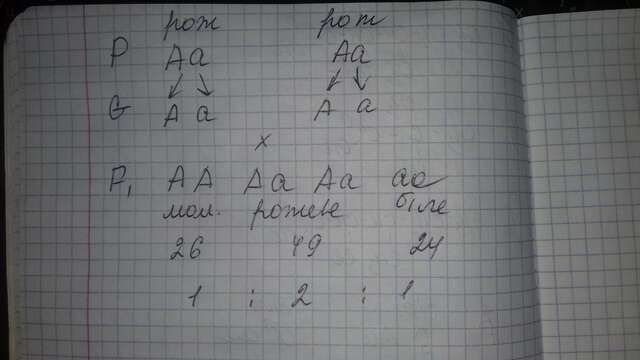 рож рож
P Aa Aa
G A a A a
x
P₁ AA Aa Aa aa
мол. рожеве біле
26 49 24
1 : 2 : 1